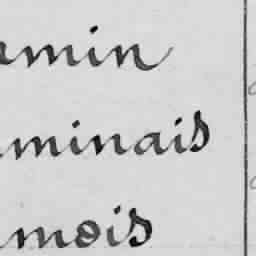 rmin
minais
mois